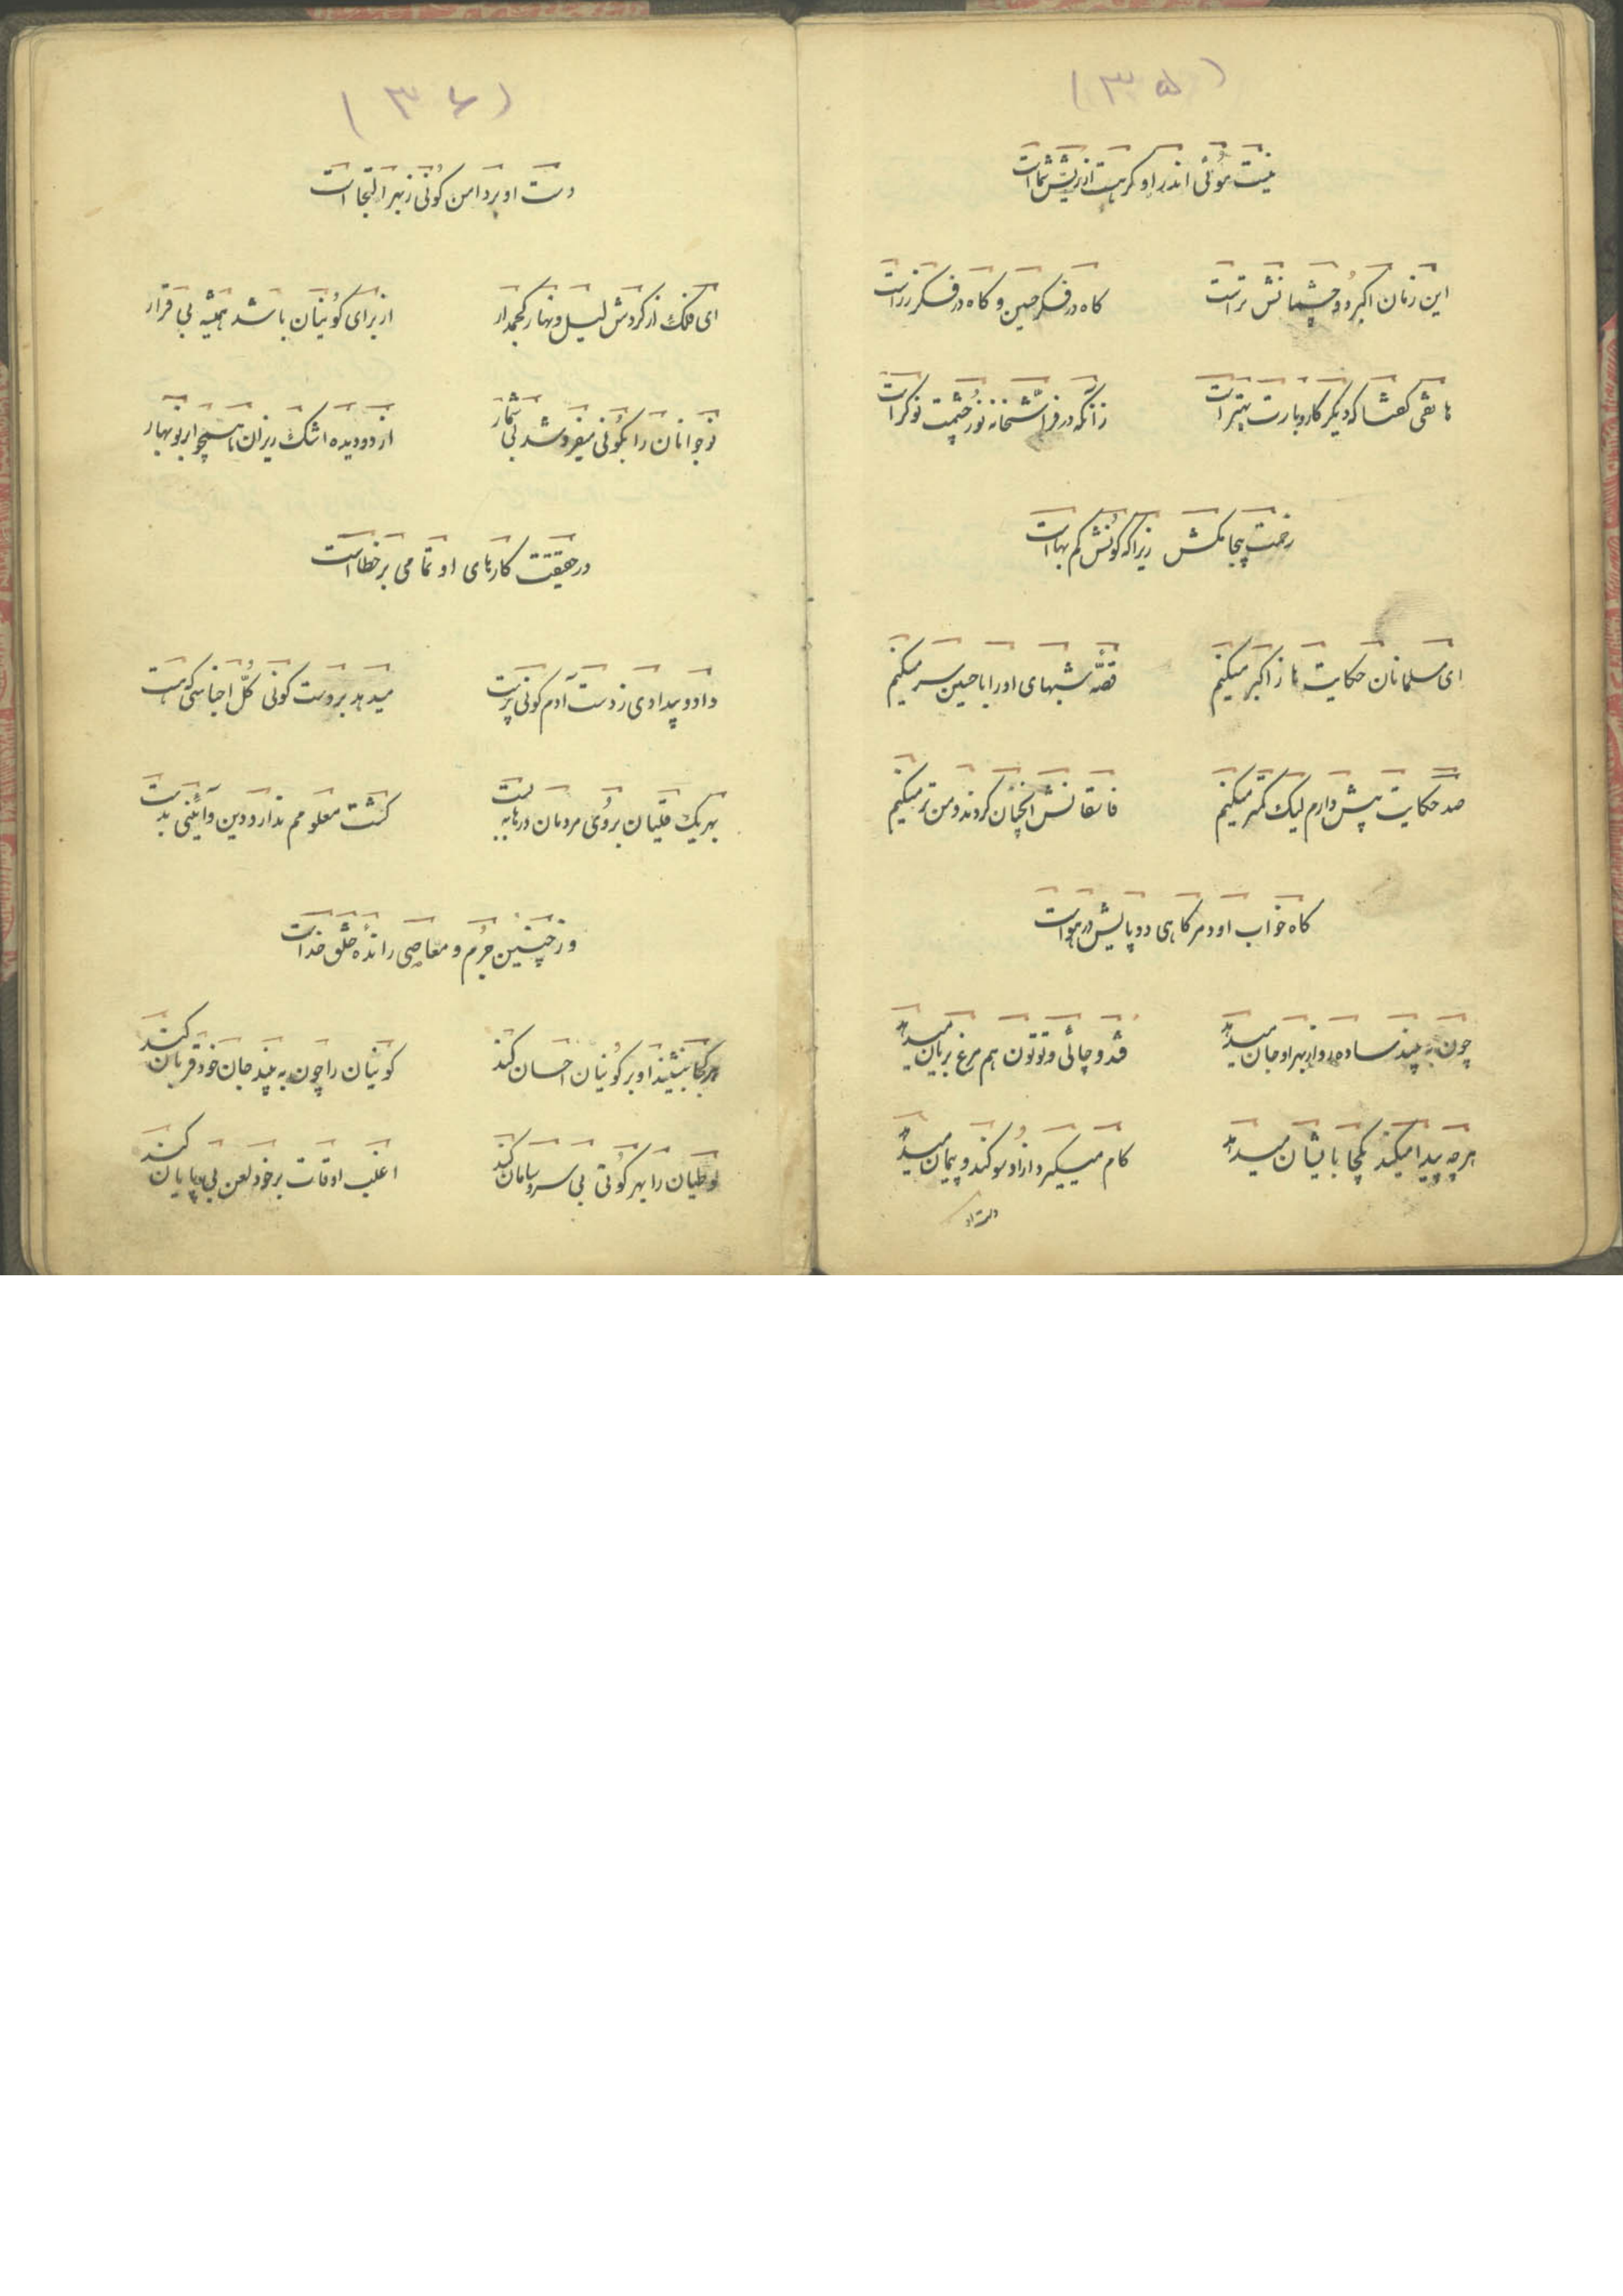 (۳۵)
نیست موئی اندر او گر هست از ریش شماست
این زمان اکبر دو چشمانش تر است
گاه در فکر حسین و گاه در فکر زر است
هاتفی گفتا که دیگر کار و بارت بهتر است
زآنکه در فراشخانه نور چشمت نوکر است
رخت پیجا مکش زیرا که کونش کم بهاست
ای مسلمانان حکایت ها ز اکبر میکنیم
قصّه شبهای او را با حسین سر میکنیم
صد حکایت پیش دارم لیک کمتر میکنیم
فاسقانش آنچنان کردند و من تر میکنیم
گاه خواب او دمر گاهی دو پایش در هواست
چون به بیند ساده رو از بهر او جان میدهد
قند و چائی و توتون هم مرغ بریان میدهد
هرچه پیدا میکند یکجا بایشان میدهد
کام میگیرد از او سوگند و پیمان میدهد
دست او
(۳۶)
دست او بر دامن کونی ز بهر التجاست
ای فلک از گردش لیل و نهار کجمدار
از برای کونیان باشد همیشه بی قرار
نوجوانان را بکونی میفروشد بی شمار
از دو دیده اشک ریزان همچو ابر نوبهار
در حقیقت کارهای او تمامی بر خطاست
داد و بیدادی ز دست آدم کونی پرست
میدهد بر دست کونی کلّ اجناسی که هست
بهر یک قلتبان بروی مردمان درها به بست
گشت معلومم ندارد دین و آئینی بدست
وز چنین جرم و معاصی رانده خلق خداست
هر کجا بنشیند او بر کونیان احسان کند
کونیان را چون به بیند جان خود قربان کند
لوطیان را بهر کونی بی سر و سامان کند
اغلب اوقات بر خود لعن بی پایان کند